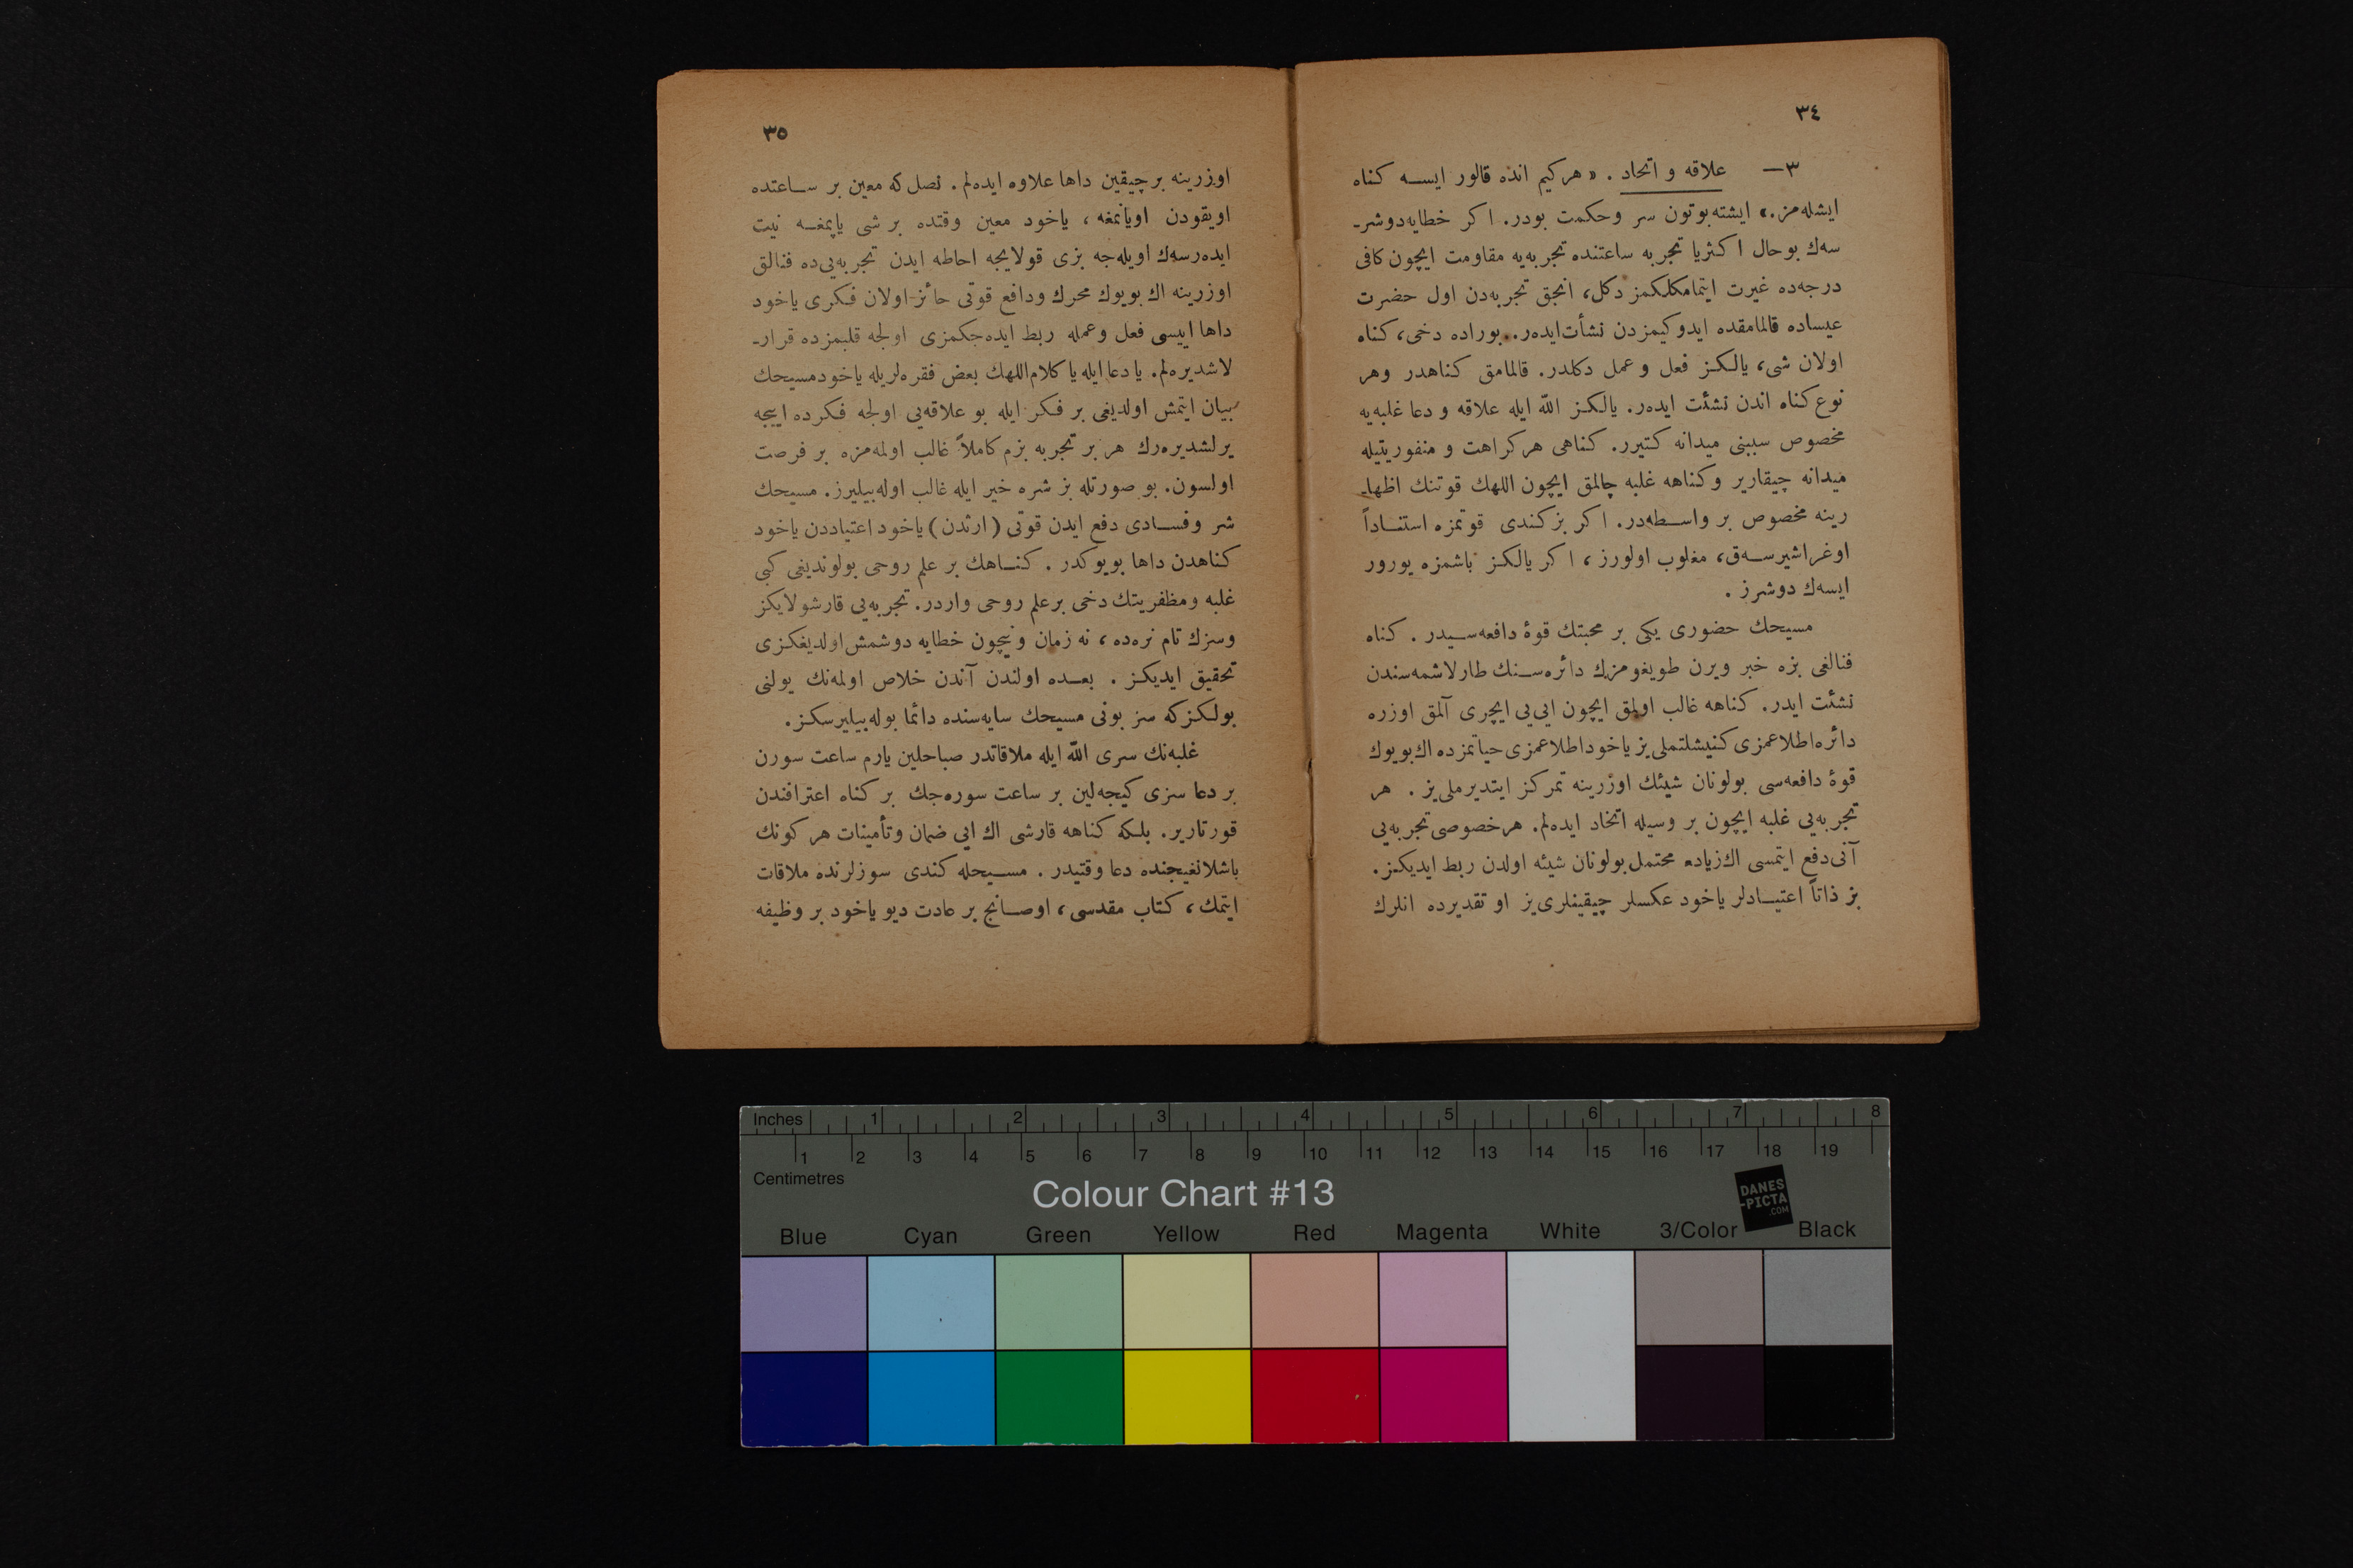 ٣٤
٣— علاقه و اتحاد . « هركيم انده قالور ايسه كناه
ايشله‌مز.» ايشته بوتون سر وحكمت بودر. اكر خطايه دوشر-
سه‌ك بوحال اكثريا تجربه ساعتنده تجربه‌يه مقاومت ايچون كافى
درجه‌ده غيرت ايتمامكلكمز دكل، انجق تجربه‌دن اول حضرت
عيساده قالمامقده ايدوكيمزدن نشأت ايده‌ر. بوراده دخى، كناه
اولان شى، يالكز فعل و عمل دكلدر. قالمامق كناهدر وهر
نوع كناه اندن نشئت ايده‌ر. يالكز الله ايله علاقه و دعا غلبه‌يه
مخصوص سببنى ميدانه كتيرر. كناهى هر كراهت و منفوريتيله
ميدانه چيقارير وكناهه غلبه چالمق ايچون اللهك قوتنك اظها-
رينه مخصوص بر واسطه‌در. اكر بز كندى قوتمزه استناداً
اوغراشيرسه‌ق، مغلوب اولورز، اكر يالكز باشمزه يورور
ايسه‌ك دوشرز .
مسيحك حضورى يكى بر محبتك قوۀ دافعه‌سيدر . كناه
فنالغى بزه خبر ويرن طويغومزك دائره‌سنك طارلاشمه‌سندن
نشئت ايدر. كناهه غالب اولمق ايچون ايى‌يى ايچرى آلمق اوزره
دائره اطلاعمزى كنيشلتملى‌يز ياخود اطلاعمزى حياتمزده اك بويوك
قوۀ دافعه‌سى بولونان شيئك اوزرينه تمركز ايتديرملى‌يز . هر
تجربه‌يى غلبه ايچون بر وسيله اتخاذ ايده‌لم. هر خصوصى تجربه‌يى
آنى دفع ايتمسى اك زياده محتمل بولونان شيئه اولدن ربط ايديكز.
بز ذاتاً اعتيادلر ياخود عكسلر چيقينلرى‌يز او تقديرده انلرك
٣٥
اوزرينه بر چيقين داها علاوه ايده‌لم. نصل كه معين بر ساعتده
اويقودن اويانمغه ، ياخود معين وقتده بر شى ياپمغه نيت
ايده‌رسه‌ك اويله‌جه بزى قولايجه احاطه ايدن تجربه‌يى‌ده فنالق
اوزرينه اك بويوك محرك ودافع قوتى حائز اولان فكرى ياخود
داها اييسى فعل وعمله ربط ايده‌جكمزى اولجه قلبمزده قرار-
لاشديره‌لم. يا دعا ايله يا كلام اللهك بعض فقره‌لريله ياخود مسيحك
بيان ايتمش اولديغى بر فكر ايله بو علاقه‌يى اولجه فكرده اييجه
يرلشديره‌رك هر بر تجربه بزم كاملاً غالب اولمه‌مزه بر فرصت
اولسون. بو صورتله بز شره خير ايله غالب اوله‌بيليرز. مسيحك
شر وفسادى دفع ايدن قوتى (ارثدن) ياخود اعتياددن ياخود
كناهدن داها بويوكدر . كناهك بر علم روحى بولونديغى كبى
غلبه ومظفريتك دخى بر علم روحى واردر. تجربه‌يى قارشولايكز
وسزك تام نره‌ده ، نه زمان و نيچون خطايه دوشمش اولديغكزى
تحقيق ايديكز . بعده اولندن آندن خلاص اولمه‌نك يولنى
بولكز كه سز بونى مسيحك سايه‌سنده دائما بوله‌بيليرسكز.
غلبه‌نك سرى الله ايله ملاقاتدر صباحلين يارم ساعت سورن
بر دعا سزى كيجه‌لين بر ساعت سوره‌جك بر كناه اعترافندن
قورتارير. بلكه كناهه قارشى اك ايى ضمان وتأمينات هر كونك
باشلانغيجنده دعا وقتيدر . مسيحله كندى سوزلرنده ملاقات
ايتمك ، كتاب مقدسى ، اوصانج بر عادت ديو ياخود بر وظيفه
Inches 1 2 3 4 5 6 7 8
1 2 3 4 5 6 7 8 9 10 11 12 13 14 15 16 17 18 19
Centimetres
Colour Chart #13
DANES
-PICTA
.COM
Blue Cyan Green Yellow Red Magenta White 3/Color Black